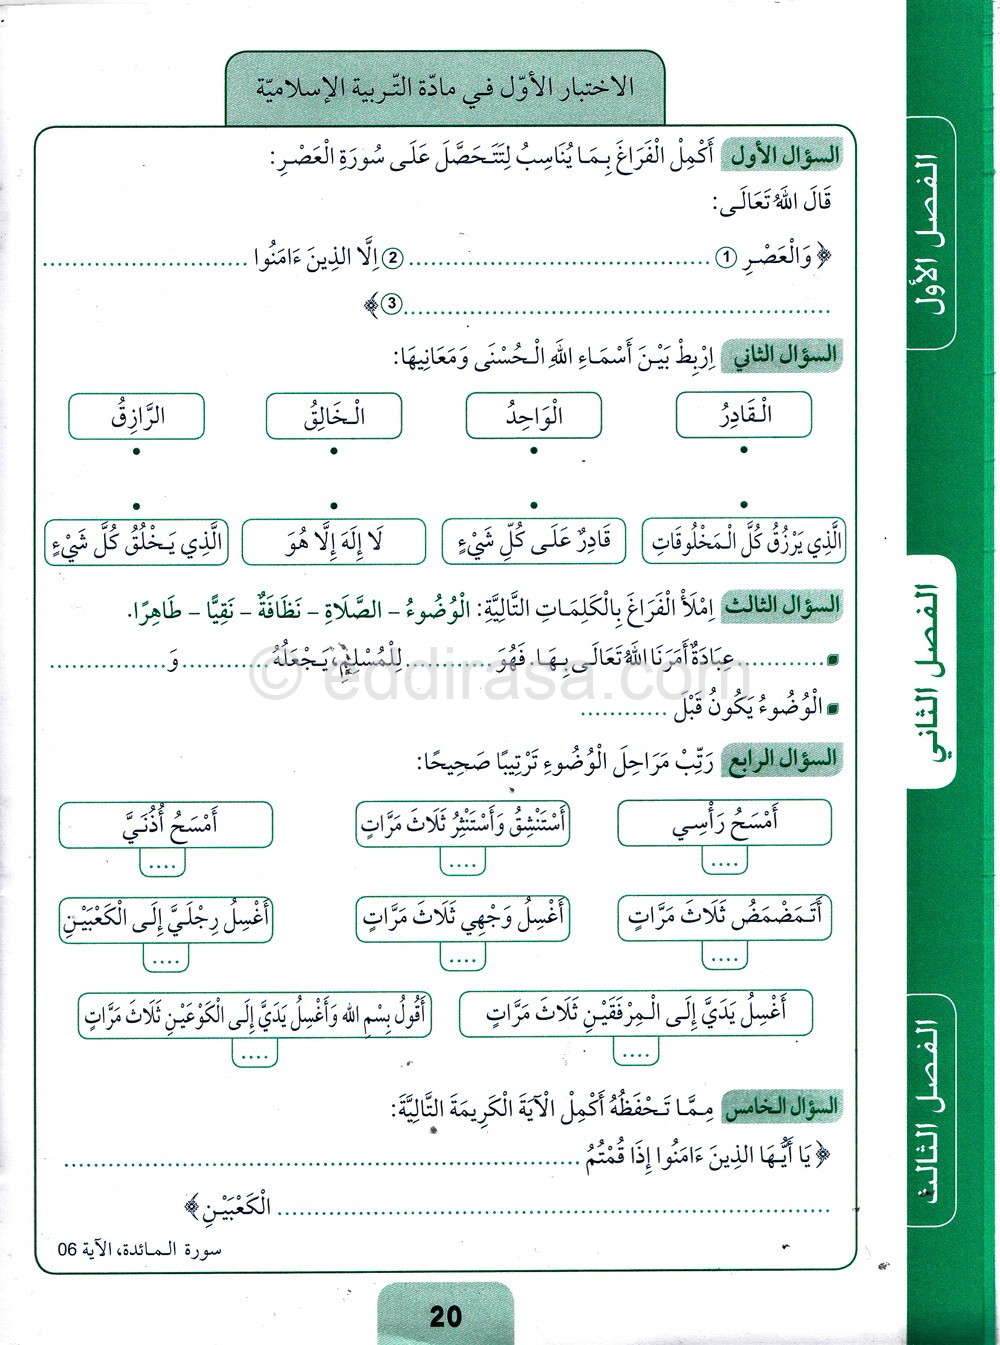 الاختبار الأوّل في مادّة التّربية الإسلاميّة
السؤال الأول أَكْمِلْ الْفَرَاغَ بِمَا يُنَاسِبُ لِتَتَحَصَّلَ عَلَى سُورَةِ الْعَصْرِ:
قَالَ اللهُ تَعَالَى:
﴿ وَالْعَصْرِ ① .............................. ② اِلَّا الذِينَ ءَامَنُوا ..............................
.............................. ③ ﴾
السؤال الثاني اِرْبِطْ بَيْنَ أَسْمَاءِ اللهِ الْحُسْنَى وَمَعَانِيهَا:
الْقَادِرُ الْوَاحِدُ الْخَالِقُ الرَّازِقُ
الَّذِي يَرْزُقُ كُلَّ الْمَخْلُوقَاتِ قَادِرٌ عَلَى كُلِّ شَيْءٍ لَا إِلَهَ إِلَّا هُوَ الَّذِي يَخْلُقُ كُلَّ شَيْءٍ
السؤال الثالث اِمْلَأْ الْفَرَاغَ بِالْكَلِمَاتِ التَّالِيَّةِ: الْوُضُوءُ - الصَّلَاةِ - نَظَافَةٌ - نَقِيًّا - طَاهِرًا.
............ عِبَادَةٌ أَمَرَنَا اللهُ تَعَالَى بِهَا. فَهُوَ ............ لِلْمُسْلِمِ، يَجْعَلُهُ ............ وَ ............
© eddirasa.com
الْوُضُوءُ يَكُونُ قَبْلَ ............
السؤال الرابع رَتِّبْ مَرَاحِلَ الْوُضُوءِ تَرْتِيبًا صَحِيحًا:
أَمْسَحُ رَأْسِي أَسْتَنْشِقُ وَأَسْتَنْثِرُ ثَلَاثَ مَرَّاتٍ أَمْسَحُ أُذُنَيَّ
.... .... ....
أَتَمَضْمَضُ ثَلَاثَ مَرَّاتٍ أَغْسِلُ وَجْهِي ثَلَاثَ مَرَّاتٍ أَغْسِلُ رِجْلَيَّ إِلَى الْكَعْبَيْنِ
.... .... ....
أَغْسِلُ يَدَيَّ إِلَى الْمِرْفَقَيْنِ ثَلَاثَ مَرَّاتٍ أَقُولُ بِسْمِ الله وَأَغْسِلُ يَدَيَّ إِلَى الْكَوْعَيْنِ ثَلَاثَ مَرَّاتٍ
.... ....
السؤال الخامس مِمَّا تَحْفَظُهُ أَكْمِلْ الْآيَةَ الْكَرِيمَةَ التَّالِيَّةَ:
﴿ يَا أَيُّهَا الذِينَ ءَامَنُوا إِذَا قُمْتُمُ ..............................
.............................. الْكَعْبَيْنِ ﴾
سورة المائدة، الآية 06
20
الفصل الأول
الفصل الثاني
الفصل الثالث